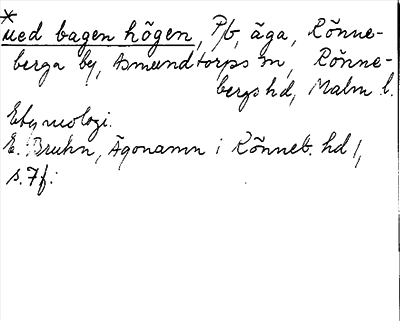 *
med bagen högen, Pb, äga, Rönne-
berga by, Asmundtorps sn, Rönne-
bergs hd, Malm. l.
Etymologi.
E. Bruhn, Ägonamn i Rönneb. hd 1,
s. 7 f.